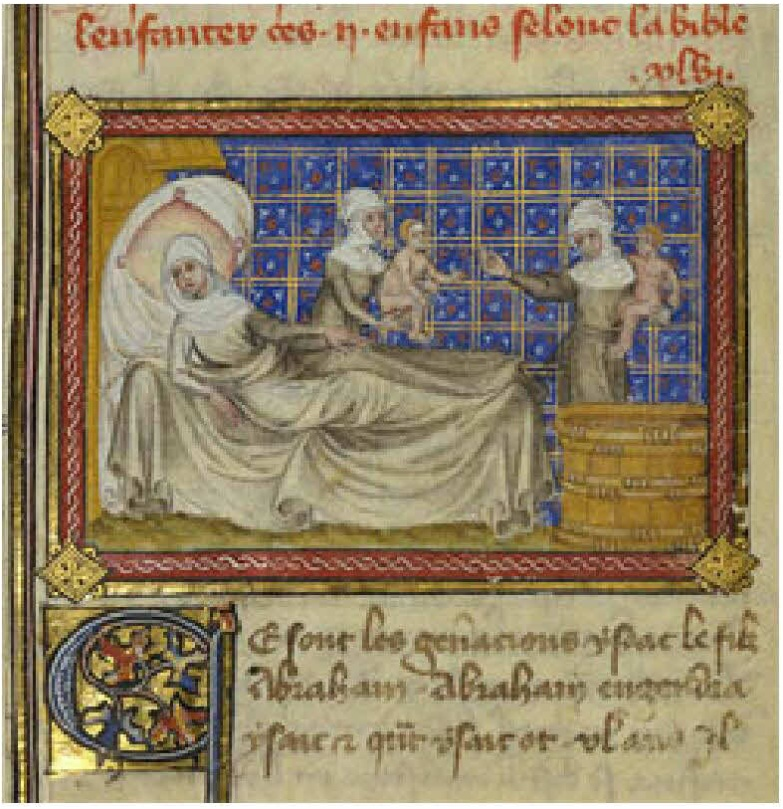 lenfanter des .ii. enfans selonc la bible
.xlvi.
Ce sont les gnacions ysaac le filz
Abraham . Abraham engendra
ysaac z qnt ysaac ot .xl ans Il